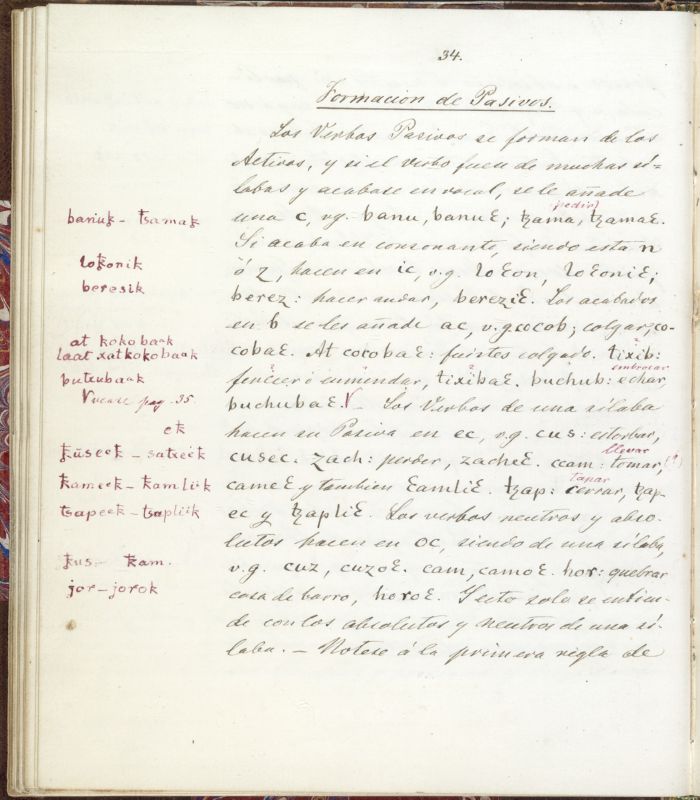 34.
Formacion de Pasivos.
Los Verbos Pasivos se forman de los
Activos, y si el verbo fuere de muchas si-
labas y acabase en vocal, se le añade
pedir)
una c, vg. banu, banuꜫ; tzama, tzamaꜫ.
Si acaba en consonante, siendo esta n
ó z, hacen en ic, v.g. loꜫon, loꜫoniꜫ;
berez: hacer andar, bereziꜫ. Los acabados
en b se les añade ac, v.g. cocob; colgar, co-
cobaꜫ. At cocobaꜫ: fuistes colgado. tixib:
embrocar
fenecer ó enmendar, tixibaꜫ. buchub: echar,
buchubaꜫ. V. Los Verbos de una silaba
hacen su Pasiva en ec, v.g. cus: estorbar,
llevar
cusec. zach: perder, zacheꜫ. ccam: tomar, (?)
tapar
cameꜫ y tambien ꜫamliꜫ. tzap: cerrar, tzap-
ec y tzapliꜫ. Los verbos neutros y abso-
lutos hacen en oc, siendo de una silaba,
v.g. cuz, cuzoꜫ. cam, camoꜫ. hor: quebrar
cosa de barro, horoꜫ. Y esto solo se entien-
de con los absolutos y neutros de una si-
laba. – Notese á la primera regla de
banuꞣ – tsamaꞣ
loꞣonik
beresik
at kokobaak
laat xatkokobaak
putcubaak
Vease pag. 35.
ek
ꞣüseek – satceek
ꞣameek – ꞣamliik
tsapeek – tsapliik
ꞣus – ꞣam.
jor – jorok